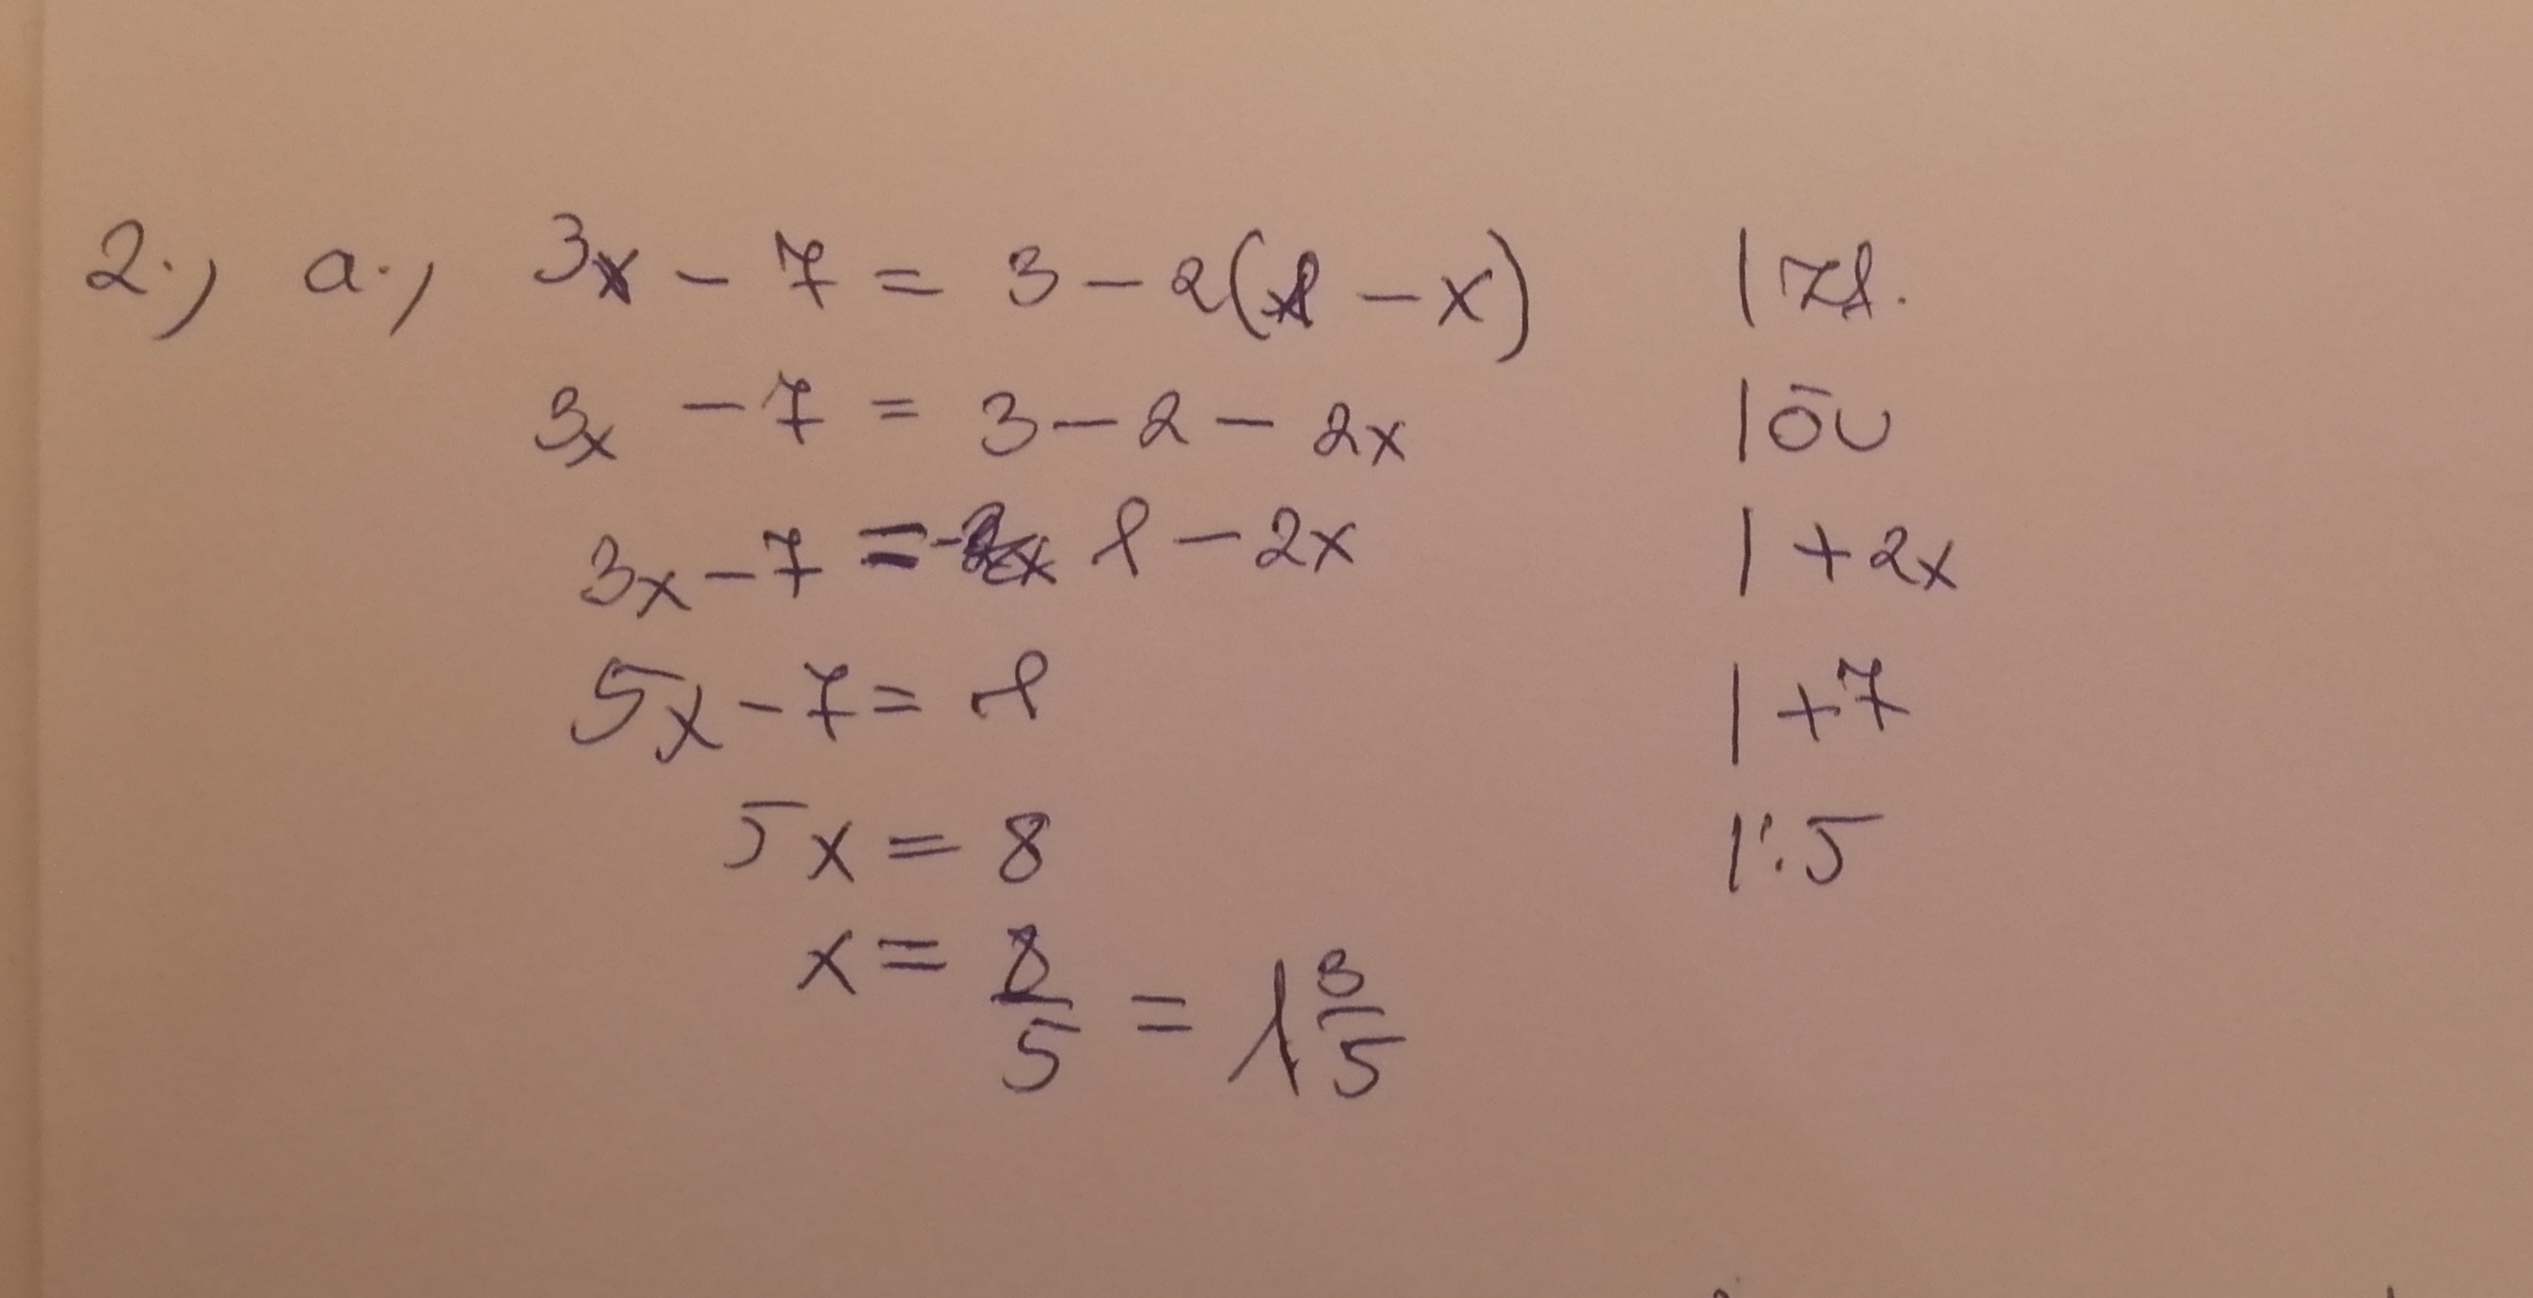 2., a., 3x - 7 = 3 - 2(1 - x) | zf.
3x - 7 = 3 - 2 - 2x | öv
3x - 7 = 1 - 2x | + 2x
5x - 7 = 1 | + 7
5x = 8 | : 5
x = 8/5 = 1 3/5